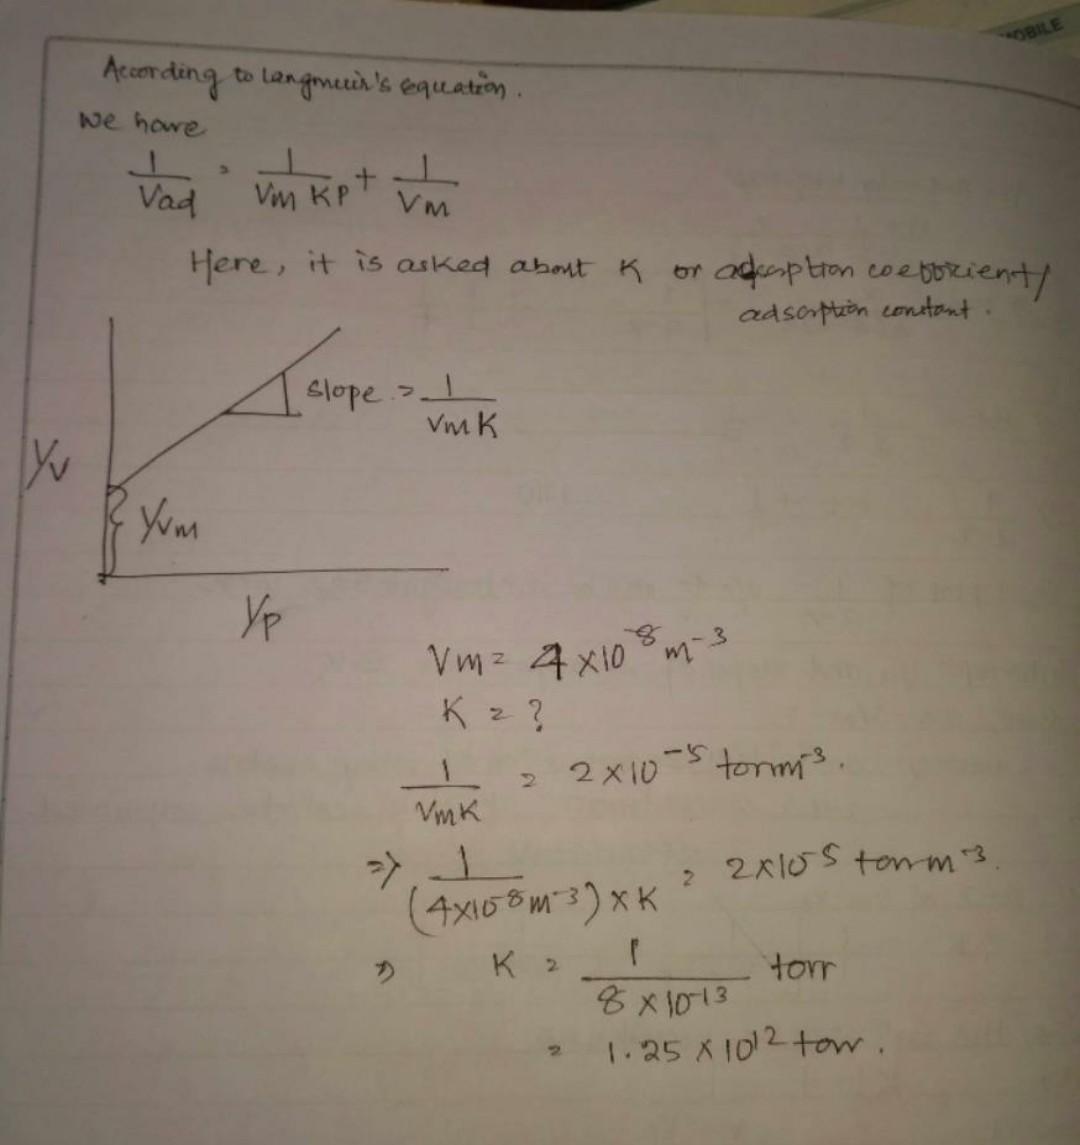 MOBILE
According to Langmuir's equation.
We have
1/Vad = 1/Vm KP + 1/Vm
Here, it is asked about K or adsorption coefficient/
adsorption constant.
slope = 1/Vm K
1/V
1/Vm
1/P
Vm = 4 x 10⁻⁸ m⁻³
K = ?
1/VmK = 2 x 10⁻⁵ torr m⁻³.
=> 1/(4x10⁻⁸ m⁻³) x K = 2x10⁻⁵ torr m⁻³.
=> K = 1/8 x 10⁻¹³ torr
= 1.25 x 10¹² torr.